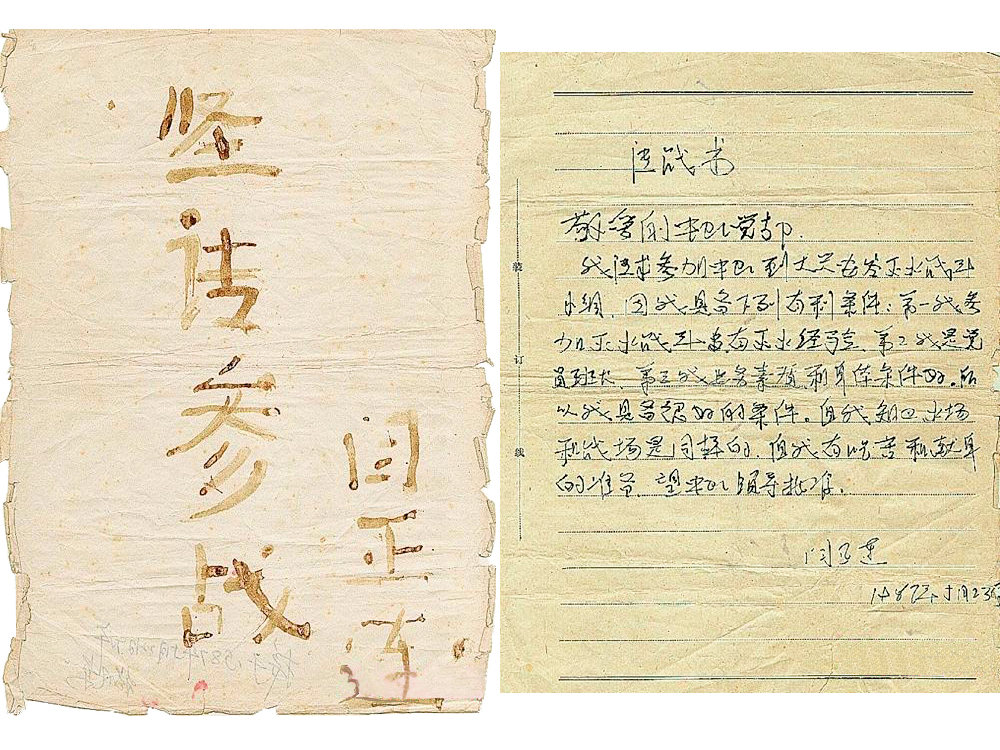 坚请参战
闫正
请战书
敬爱的中队党部.
我请求参加中队到大兴安岭灭火战斗
小组,因我具备下列有利条件:第一我参
加灭火战斗当有灭火经验、第二我是党
员班长、第三我业务素质和身体条件好。所
以我具备很好的条件。但我知火场
和战场是同样的,但我有吃苦和献身
的准备,望中队领导批准。
闫正
1987年5月23日
装
订
线